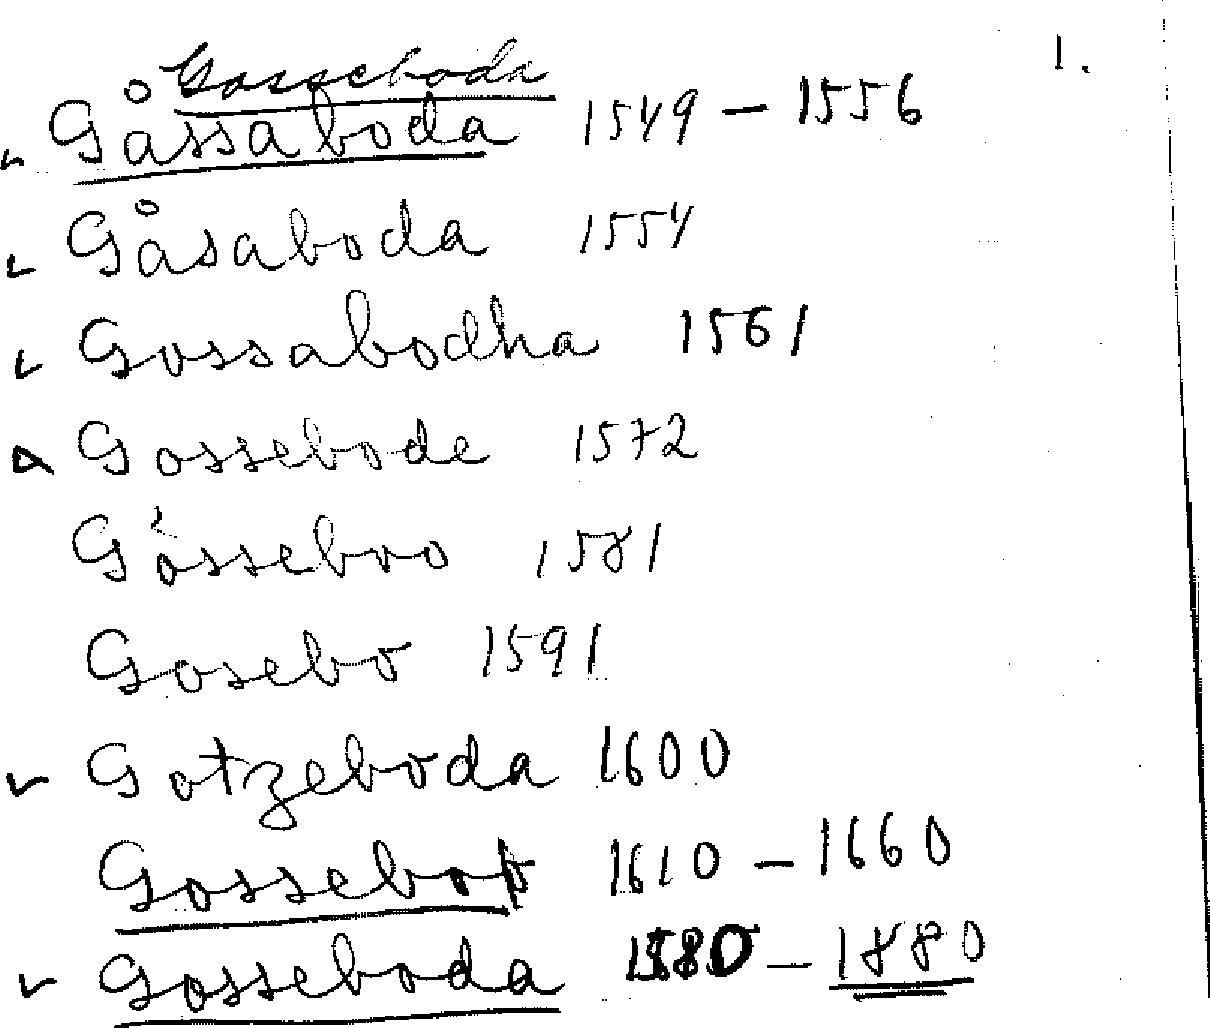 Gosseboda
1.
Gåssaboda 1549 – 1556
Gåsaboda 1554
Gossabodha 1561
Gossebode 1572
Gósseboo 1581
Gosebo 1591
Gotzeboda 1600
Gosseboo 1610 – 1660
Gosseboda 1580 – 1880